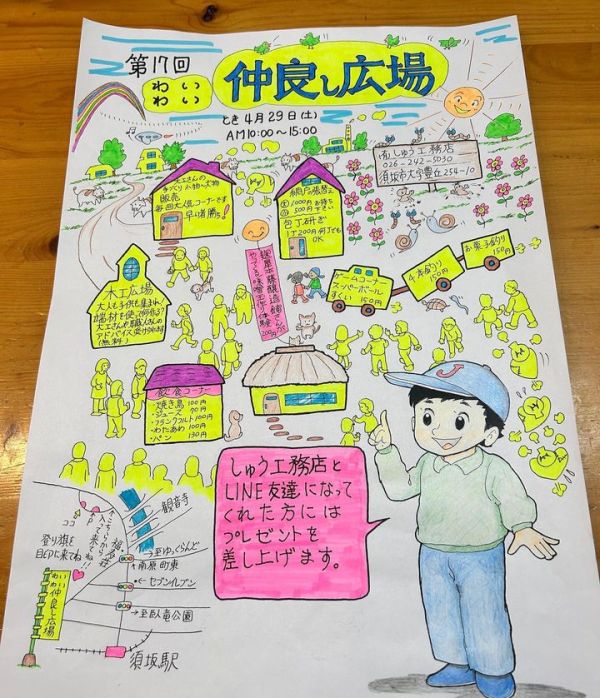 第17回
わい
わい
仲良し広場
とき 4月29日(土)
AM10:00〜15:00
(有)しゅう工務店
026-242-5030
須坂市大字豊丘254-10
大工さんの
手づくり小物・大物
販売
毎回大人気コーナーです
早い者勝ち!
網戸張替え
1000円お持ち
500円下さい
包丁研ぎ
1丁200円何丁でも
OK
木工広場
大人も子供も集まれ
端材を使って何作る?
大工さんや職人さんの
アドバイス受け放題
(無料)
やってみる味噌作り体験
ゲームコーナー
スーパーボール
すくい 150円
千本釣り
150円
お菓子釣り
150円
飲食コーナー
・焼き鳥 100円
・ジュース 70円
・フランクフルト 100円
・わたあめ 100円
・パン 130円
しゅう工務店と
LINE友達になって
くれた方には
プレゼントを
差し上げます。
観音寺
ココ
こちらから入って来てね!!
登り旗を
目印に来てね
至ゆっくらんど
南原町東
セブンイレブン
至臥竜公園
わい
わい
仲良し広場
須坂駅